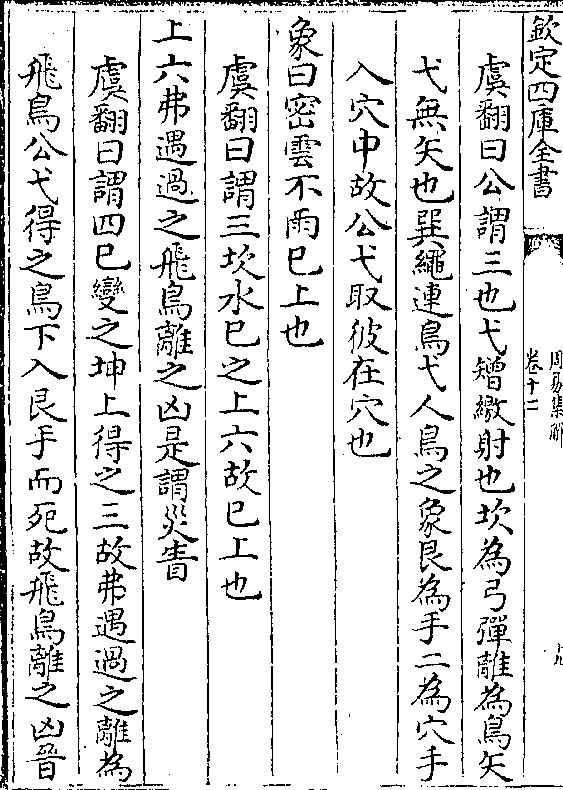 欽定四庫全書
周易集解
卷十二
虞翻曰公謂三也弋矰繳射也坎為弓彈離為鳥矢
弋無矢也巽繩連鳥弋人鳥之象艮為手二為穴手
入穴中故公弋取彼在穴也
象曰密雲不雨已上也
虞翻曰謂三坎水已之上六故已上也
上六弗遇過之飛鳥離之凶是謂災眚
虞翻曰謂四已變之坤上得之三故弗遇過之離為
飛鳥公弋得之鳥下入艮手而死故飛鳥離之凶晉